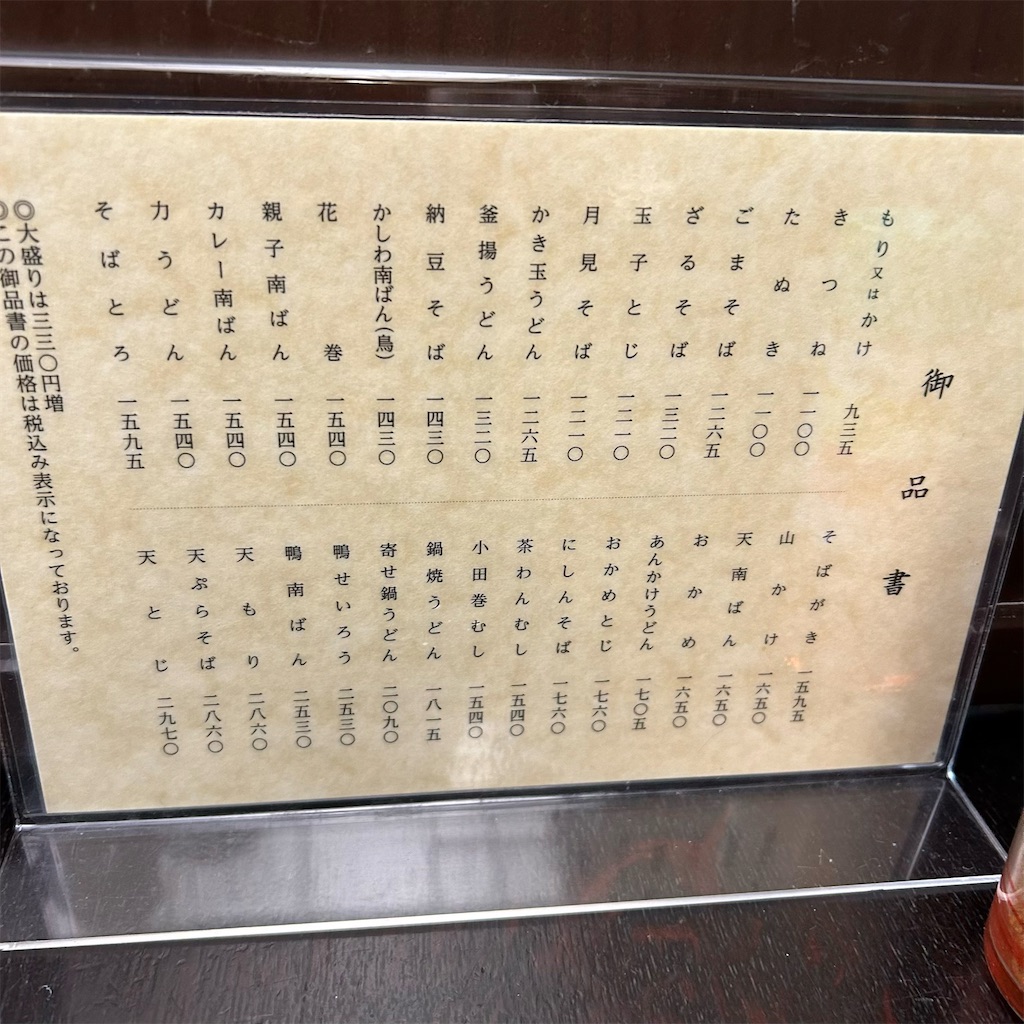 御品書
もり又はかけ 九三五
きつね 一一〇〇
たぬき 一一〇〇
ごまそば 一二六五
ざるそば 一三二〇
玉子とじ 一二一〇
月見そば 一二一〇
かき玉うどん 一二六五
釜揚うどん 一三二〇
納豆そば 一四三〇
かしわ南ばん(鳥) 一四三〇
花巻 一五四〇
親子南ばん 一五四〇
カレー南ばん 一五四〇
力うどん 一五四〇
そばとろ 一五九五
そばがき 一五九五
山かけ 一六五〇
天南ばん 一六五〇
おかめ 一六五〇
あんかけうどん 一七〇五
おかめとじ 一七六〇
にしんそば 一七六〇
茶わんむし 一五四〇
小田巻むし 一五四〇
鍋焼うどん 一八一五
寄せ鍋うどん 二〇九〇
鴨せいろう 二五三〇
鴨南ばん 二五三〇
天もり 二八六〇
天ぷらそば 二八六〇
天とじ 二九七〇
◎大盛りは三三〇円増
◎この御品書の価格は税込み表示になっております。